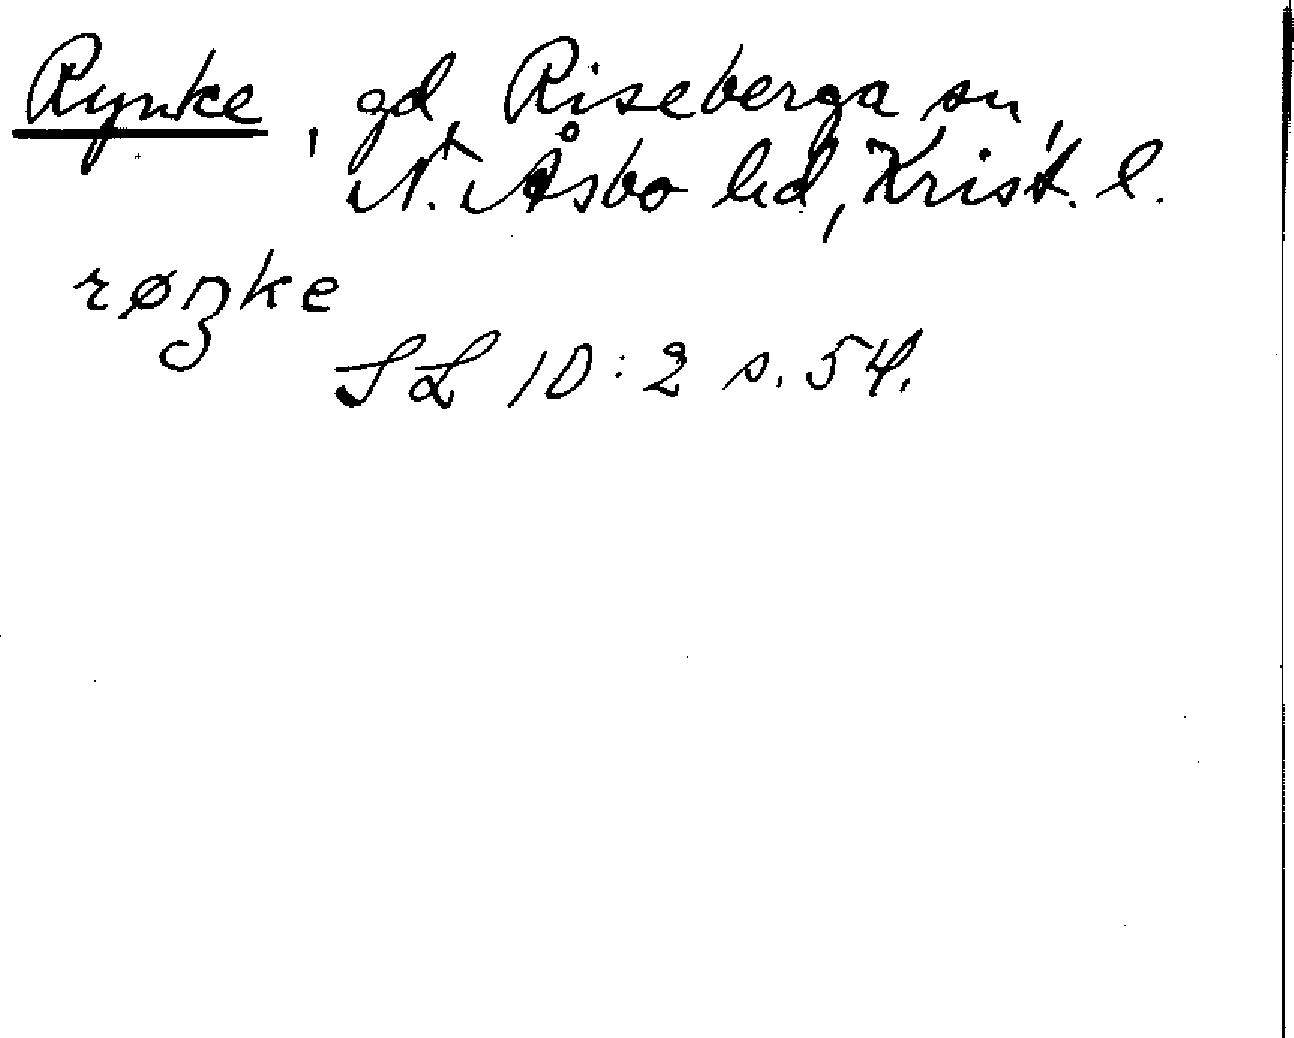 Rynke, gd, Riseberga sn,
N. Åsbo hd, Krist. l.
røŋke
SL 10:2 s. 54.